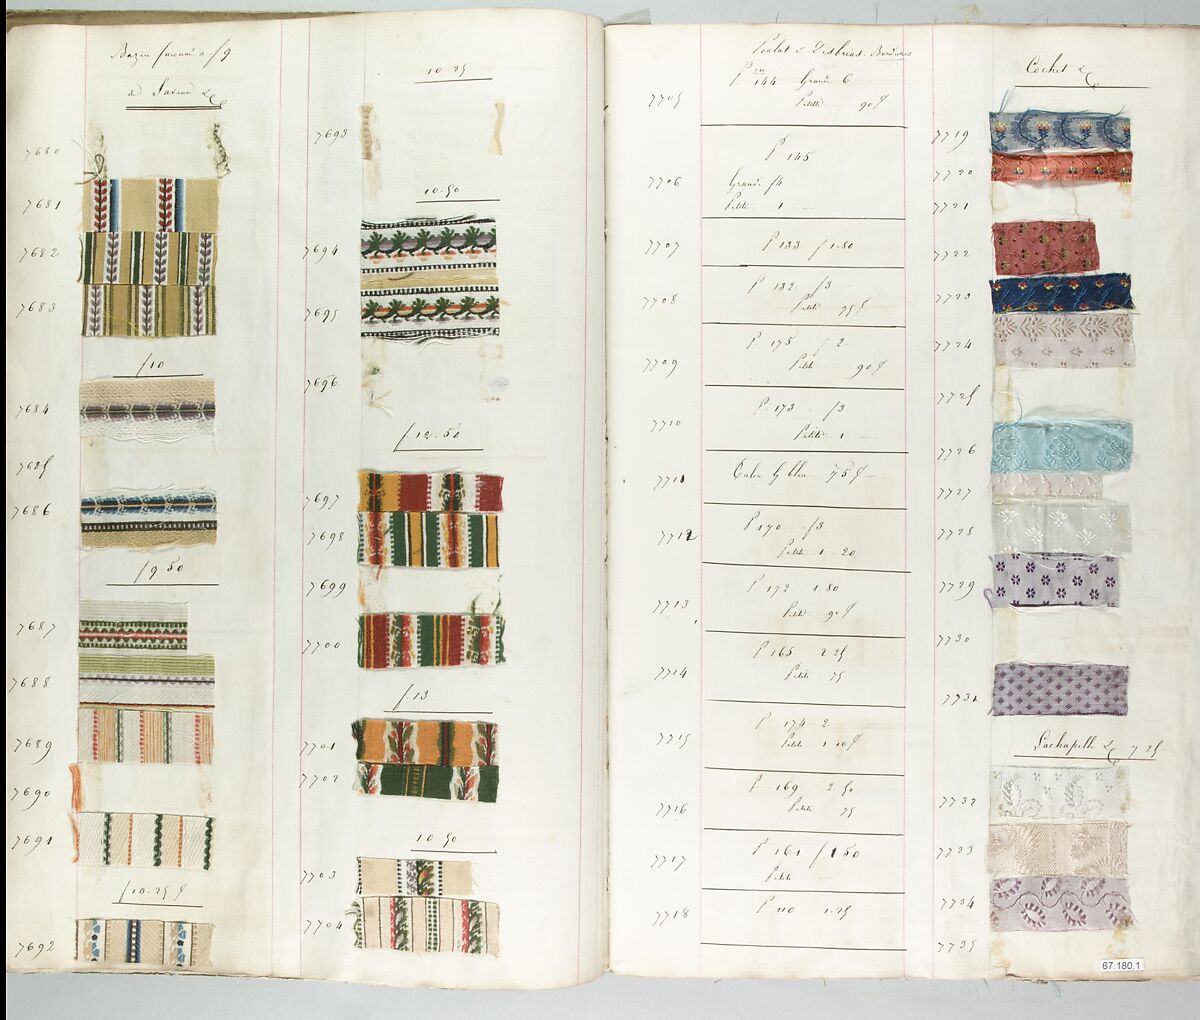 Bazin faconné a f 9
7680
7681
7682
7683
f 10
7684
7685
7686
f 9.50
7687
7688
7689
7690
7691
f 10.25
7692
10.25
7693
10.50
7694
7695
7696
f 12.50
7697
7698
7699
7700
f 13
7701
7702
10 50
7703
7704
Bordures
7705
P 144 Grande 6
Petite 90
7706
P 145
Grande f 4
Petite 1
7707
P 133 f 1.80
7708
P 132 f 3
Petite 75
7709
P 175 f 2
Petite 90
7710
P 173 f 3
Petite 1
7711
75
7712
P 170 f 3
Petite 1 20
7713
P 172 1.80
Petite 90
7714
P 165 2 25
Petite 75
7715
P 174 2
Petite 1 10
7716
P 169 2 50
Petite 75
7717
P 161 f 1 50
Petite
7718
P 110 1.25
Cochet &c
7719
7720
7721
7722
7723
7724
7725
7726
7727
7728
7729
7730
7731
Lachapelle &c 7 25
7732
7733
7734
7735
67.180.1